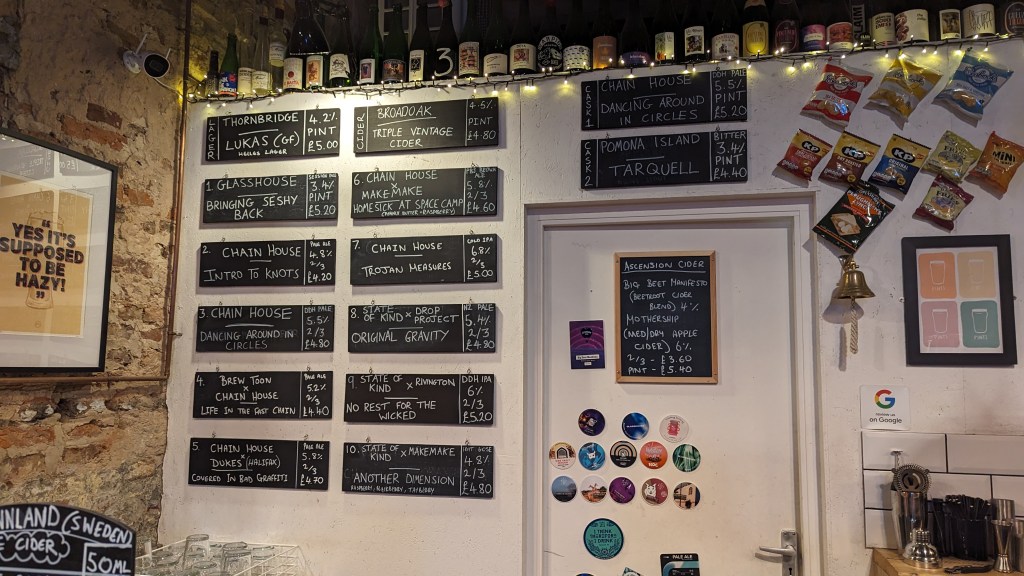 "YES IT'S
SUPPOSED
TO BE
HAZY!"
LAGER
THORNBRIDGE
LUKAS (GF)
HELLES LAGER
4.2%
PINT
£5.00
CIDER
BROADOAK
TRIPLE VINTAGE
CIDER
PINT
£4.80
1. GLASSHOUSE
BRINGING SESHY
BACK
3.4%
PINT
£5.20
6. CHAIN HOUSE
x
MAKEMAKE
HOMESICK AT SPACE CAMP
5.8%
2/3
£4.60
2. CHAIN HOUSE
INTRO TO KNOTS
PALE ALE
4.8%
2/3
£4.20
7. CHAIN HOUSE
TROJAN MEASURES
COLD IPA
6.8%
2/3
£5.00
3. CHAIN HOUSE
DANCING AROUND IN
CIRCLES
DDH PALE
5.5%
2/3
£4.80
8. STATE OF KIND x DROP PROJECT
ORIGINAL GRAVITY
NZ PALE
5.4%
2/3
£4.80
4. BREW TOON
x
CHAIN HOUSE
LIFE IN THE FAST CHAIN
PALE ALE
5.2%
2/3
£4.40
9. STATE OF KIND x RIVINGTON
NO REST FOR THE
WICKED
DDH IPA
6%
2/3
£5.20
5. CHAIN HOUSE
x
DUKES (HALIFAX)
COVERED IN BAD GRAFFITI
PALE ALE
5.8%
2/3
£4.70
10. STATE OF KIND x MAKEMAKE
ANOTHER DIMENSION
GOSE
4.8%
2/3
£4.80
CASK 1
CHAIN HOUSE
DANCING AROUND
IN CIRCLES
DDH PALE
5.5%
PINT
£5.20
CASK 2
POMONA ISLAND
TARQUELL
BITTER
3.4%
PINT
£4.40
ASCENSION CIDER
BIG BEET MANIFESTO
(BEETROOT CIDER
BLEND) 4%
MOTHERSHIP
(MED/DRY APPLE
CIDER) 6%
2/3 - £3.60
PINT - £5.40
3
KP
KP
KP
MINI
G
on Google
PALE ALE
(SWEDEN)
CIDER
50ML